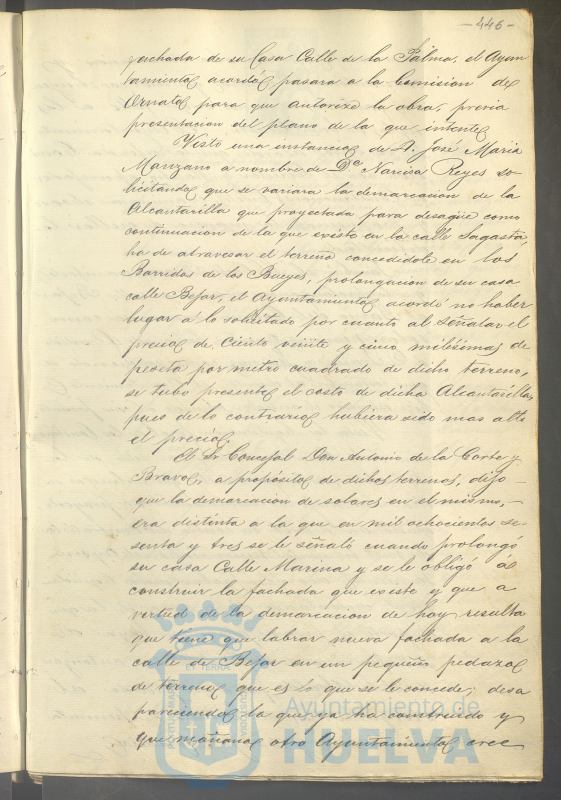 - 446 -
fachada de su Casa Calle de la Palma, el Ayun
tamiento acordó pasara a la Comision de
Ornato para que autorize la obra, previa
presentacion del plano de la que intente
Visto una instancia de D. José Maria
Manzano a nombre de Dª Narcisa Reyes so
licitando que se variara la demarcacion de la
Alcantarilla que proyectada para desague como
continuacion de la que existe en la calle Sagasta,
ha de atravesar el terreno concedidole en los
Barridos de los Bueyes, prolongacion de su casa
calle Bejar, el Ayuntamiento acordó no haber
lugar á lo solicitado por cuanto al señalar el
precio de Ciento veinte y cinco milésimas de
peseta por metro cuadrado de dicho terreno,
se tubo presente el costo de dicha Alcantarilla,
pues de lo contrario hubiera sido mas alto
el precio.
El Sr Concejal Don Antonio de la Corte y
Bravo, a propósito de dichos terrenos, dijo
que la demarcacion de solares en el mismo,
era distinta a la que en mil ochocientos se
senta y tres se le señaló cuando prolongó
su casa Calle Marina y se le obligó á
construir la fachada que existe y que a
vertud de la demarcacion de hoy resulta
que tiene que labrar nueva fachada a la
calle de Bejar en un pequeño pedazo
de terreno que es lo que se le concede, desa
pareciendo la que ya ha construido y
que mañana otro Ayuntamiento cree
Ayuntamiento de
HUELVA